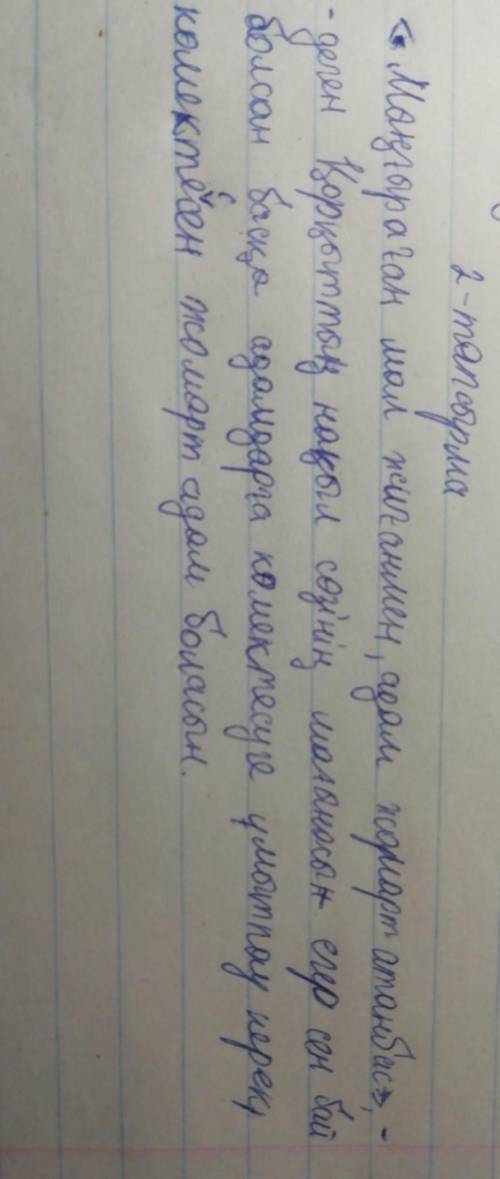 2-тапсырма
«Маңғыраған мал жиғанмен, адам жомарт атанбас», -
- деген Қорқыттың нақыл сөзінің мағынасын егер сен бай
болсан басқа адамдарға көмектесуге ұмытпау керек,
көмектесен жомарт адам боласын.